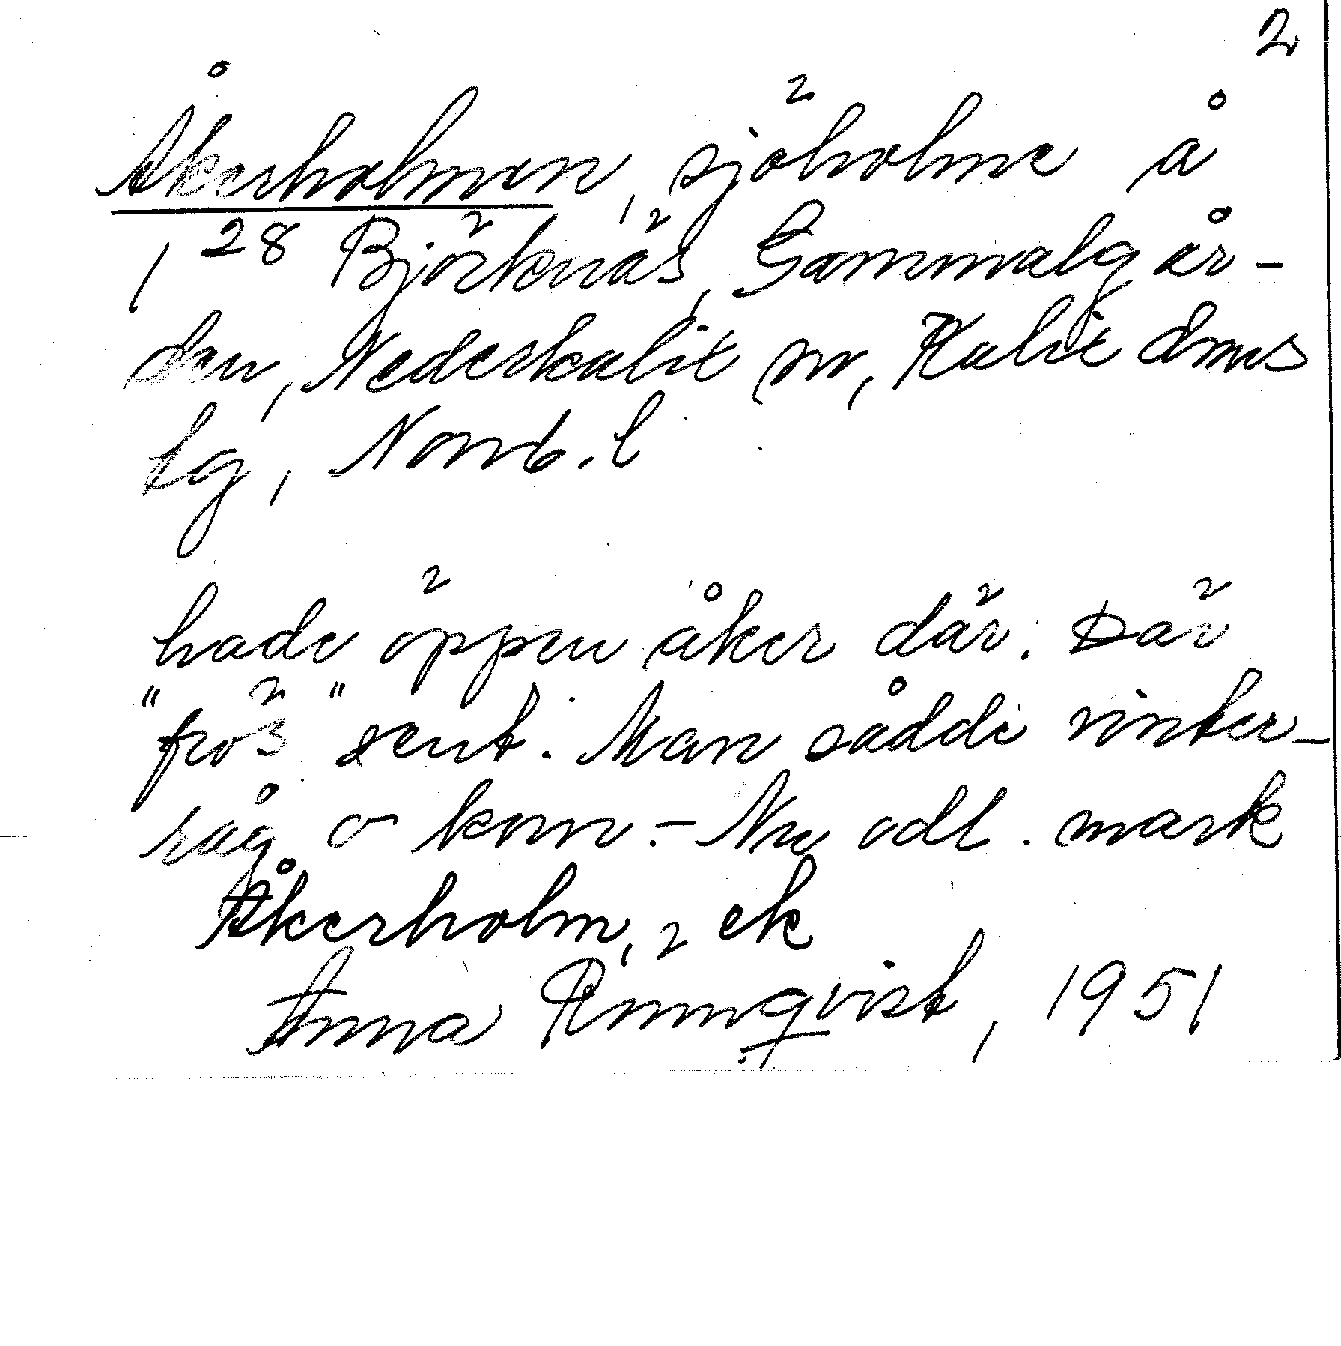 2
Åkerholmen, sjöholme å
1 28 Björknäs, Gammalgår-
den, Nederkalix sn, Kalix dms
lg, Norrb. l
hade öppen åker där. Där
"frös" sent. Man sådde vinter-
råg o korn. - Nu odl. mark
Åkerholm, 2 ek
Anna Rönnqvist, 1951